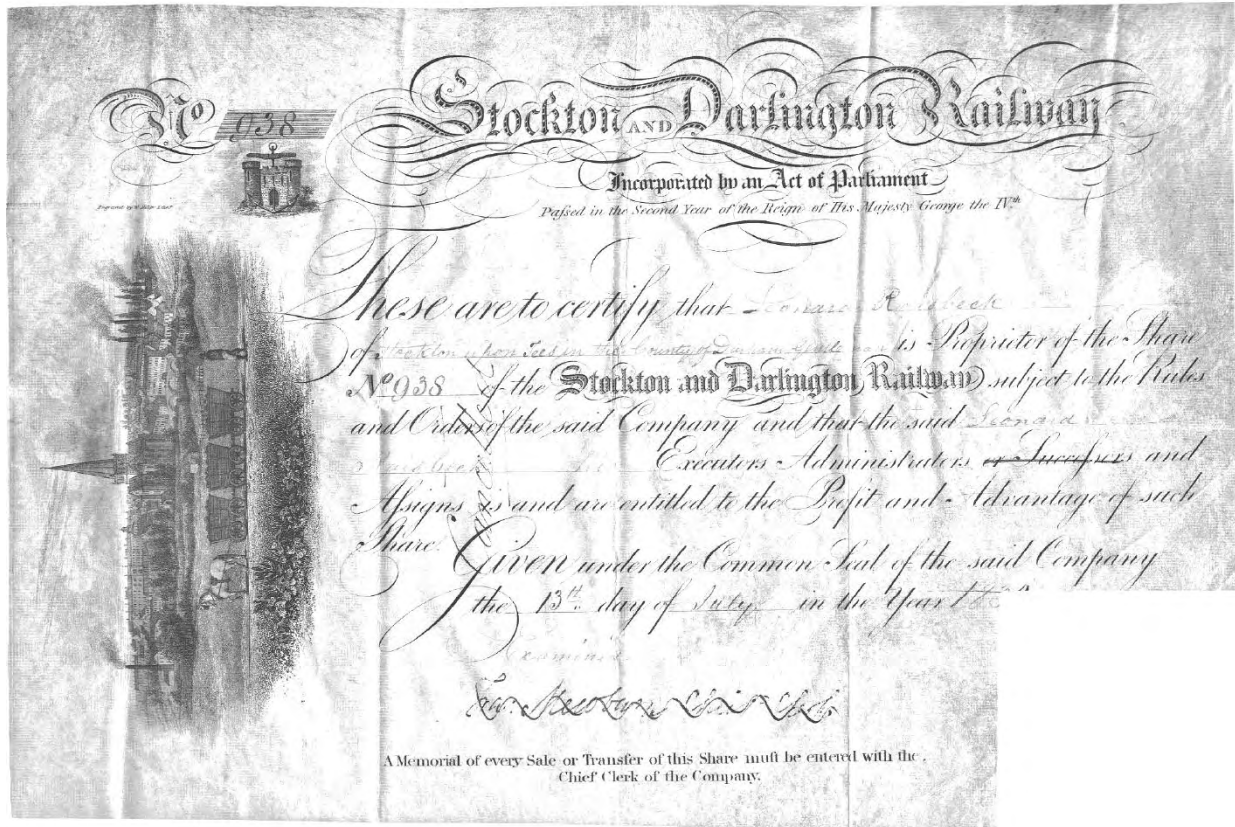 No 938
Stockton AND Darlington Railway
Incorporated by an Act of Parliament
Paſsed in the Second Year of the Reign of His Majesty George the IVth.
These are to certify that Leonard Raisbeck
of Stockton upon Tees in the County of Durham is Proprietor of the Share
No 938 of the Stockton and Darlington Railway subject to the Rules
and Orders of the said Company and that the said Leonard
Raisbeck his Executors Administrators or Succeſsors and
Aſsigns is and are entitled to the Profit and Advantage of such
Share. Given under the Common Seal of the said Company
the 13th day of July in the Year
Cancelled
Examined
A Memorial of every Sale or Transfer of this Share muſt be entered with the
Chief Clerk of the Company.